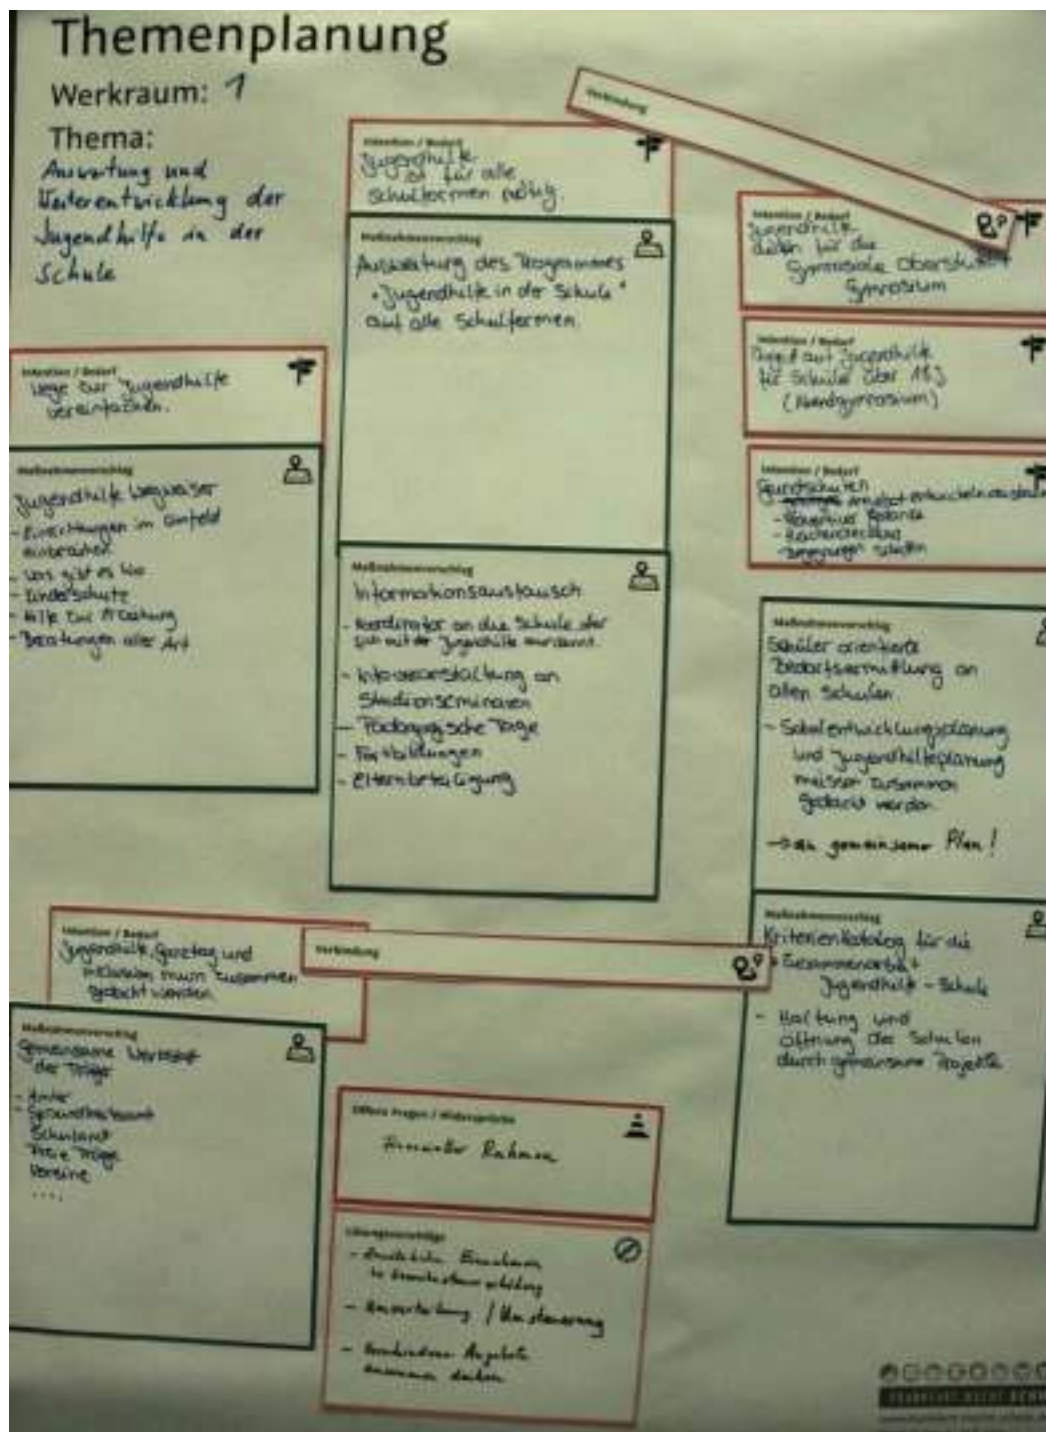 Themenplanung
Werkraum: 1
Thema:
Ausweitung und
Weiterentwicklung der
Jugendhilfe in der
Schule
Intention / Bedarf
Wege zur Jugendhilfe
vereinfachen.
Maßnahmenvorschlag
Jugendhilfe Wegweiser
- Einrichtungen im Umfeld
einbeziehen
- was gibt es wo
- Kinderschutz
- Hilfe zur Erziehung
- Beratungen aller Art
Intention / Bedarf
Jugendhilfe, Ganztag und
Inklusion muss zusammen
gedacht werden
Maßnahmenvorschlag
Gemeinsame Werkstatt
der Träger
- Ämter
- Gesundheitsamt
Schulamt
Freie Träger
Vereine
....
Intention / Bedarf
Jugendhilfe
ist für alle
Schulformen nötig.
Maßnahmenvorschlag
Ausweitung des Programmes
"Jugendhilfe in der Schule"
auf alle Schulformen.
Maßnahmenvorschlag
Informationsaustausch
- Koordinator an die Schule der
sich mit der Jugendhilfe auskennt.
- Infoveranstaltung an
Studienseminaren
- Pädagogische Tage
- Fortbildungen
- Elternbeteiligung
Verbindung
Offene Fragen / Widersprüche
Finanzieller Rahmen
Lösungsvorschläge
- Zusätzliche Einnahmen
- Umverteilung / Umsteuerung
- Verschiedene Angebote
zusammen denken
Verbindung
Intention / Bedarf
Jugendhilfe
für die
Gymnasiale Oberstufe
Gymnasium
Intention / Bedarf
auf Jugendhilfe
für Schüler über 18 J
(Abendgymnasium)
Intention / Bedarf
Grundschulen
Angebot entwickeln
Maßnahmenvorschlag
Schüler orientierte
Bedarfsermittlung an
allen Schulen
- Schulentwicklungsplanung
und Jugendhilfeplanung
müssen zusammen
gedacht werden
→ ein gemeinsamer Plan!
Maßnahmenvorschlag
Kriterienkatalog für die
Zusammenarbeit
Jugendhilfe - Schule
- Haltung und
Öffnung der Schulen
durch gemeinsame Projekte
FRANKFURT MACHT SCHU